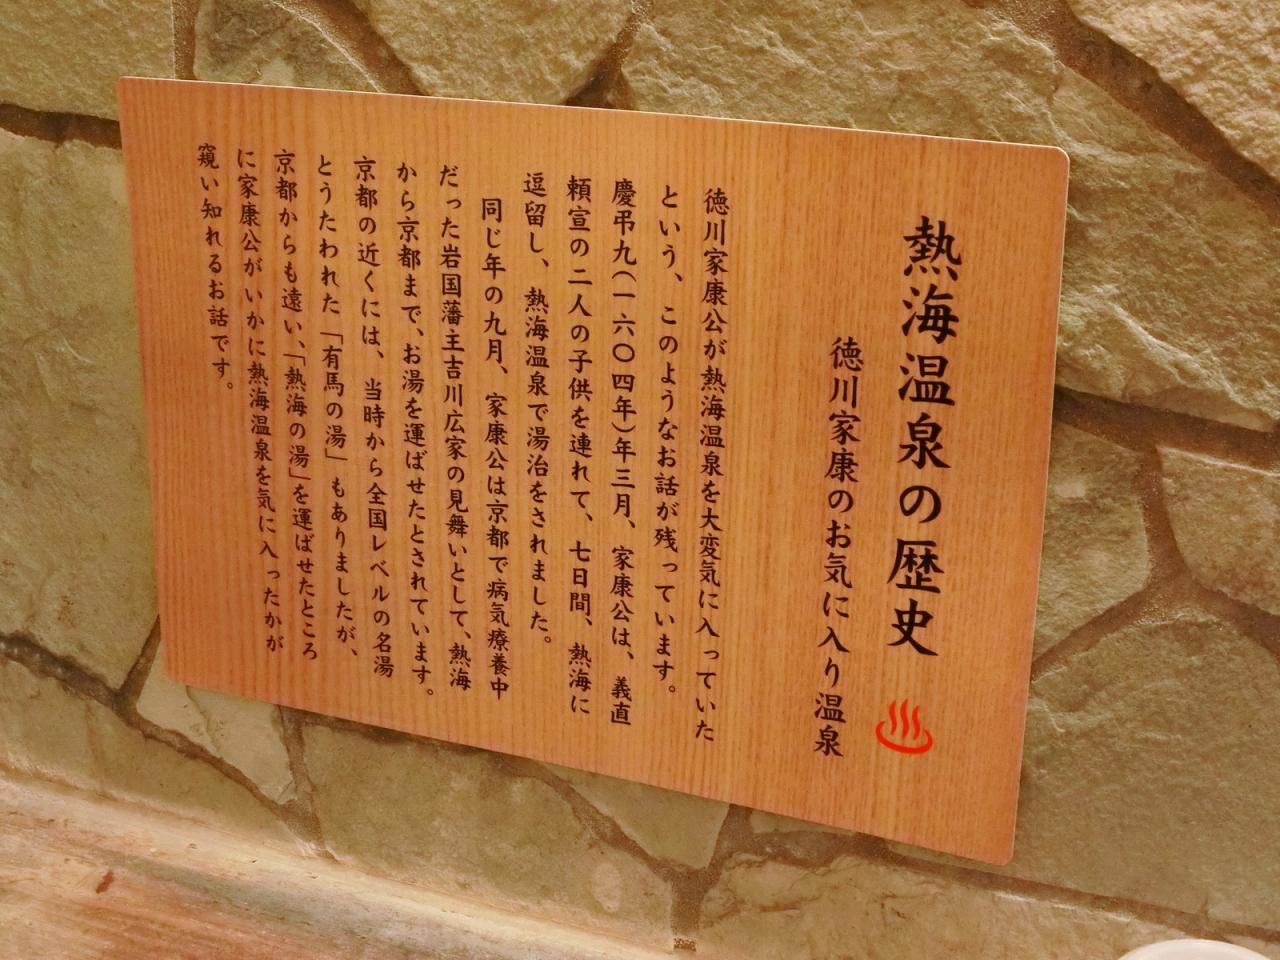 熱海温泉の歴史
徳川家康のお気に入り温泉
徳川家康公が熱海温泉を大変気に入っていた
という、このようなお話が残っています。
慶弔九(一六〇四年)年三月、家康公は、義直
頼宣の二人の子供を連れて、七日間、熱海に
逗留し、熱海温泉で湯治をされました。
同じ年の九月、家康公は京都で病気療養中
だった岩国藩主吉川広家の見舞いとして、熱海
から京都まで、お湯を運ばせたとされています。
京都の近くには、当時から全国レベルの名湯
とうたわれた「有馬の湯」もありましたが、
京都からも遠い、「熱海の湯」を運ばせたところ
に家康公がいかに熱海温泉を気に入ったかが
窺い知れるお話です。